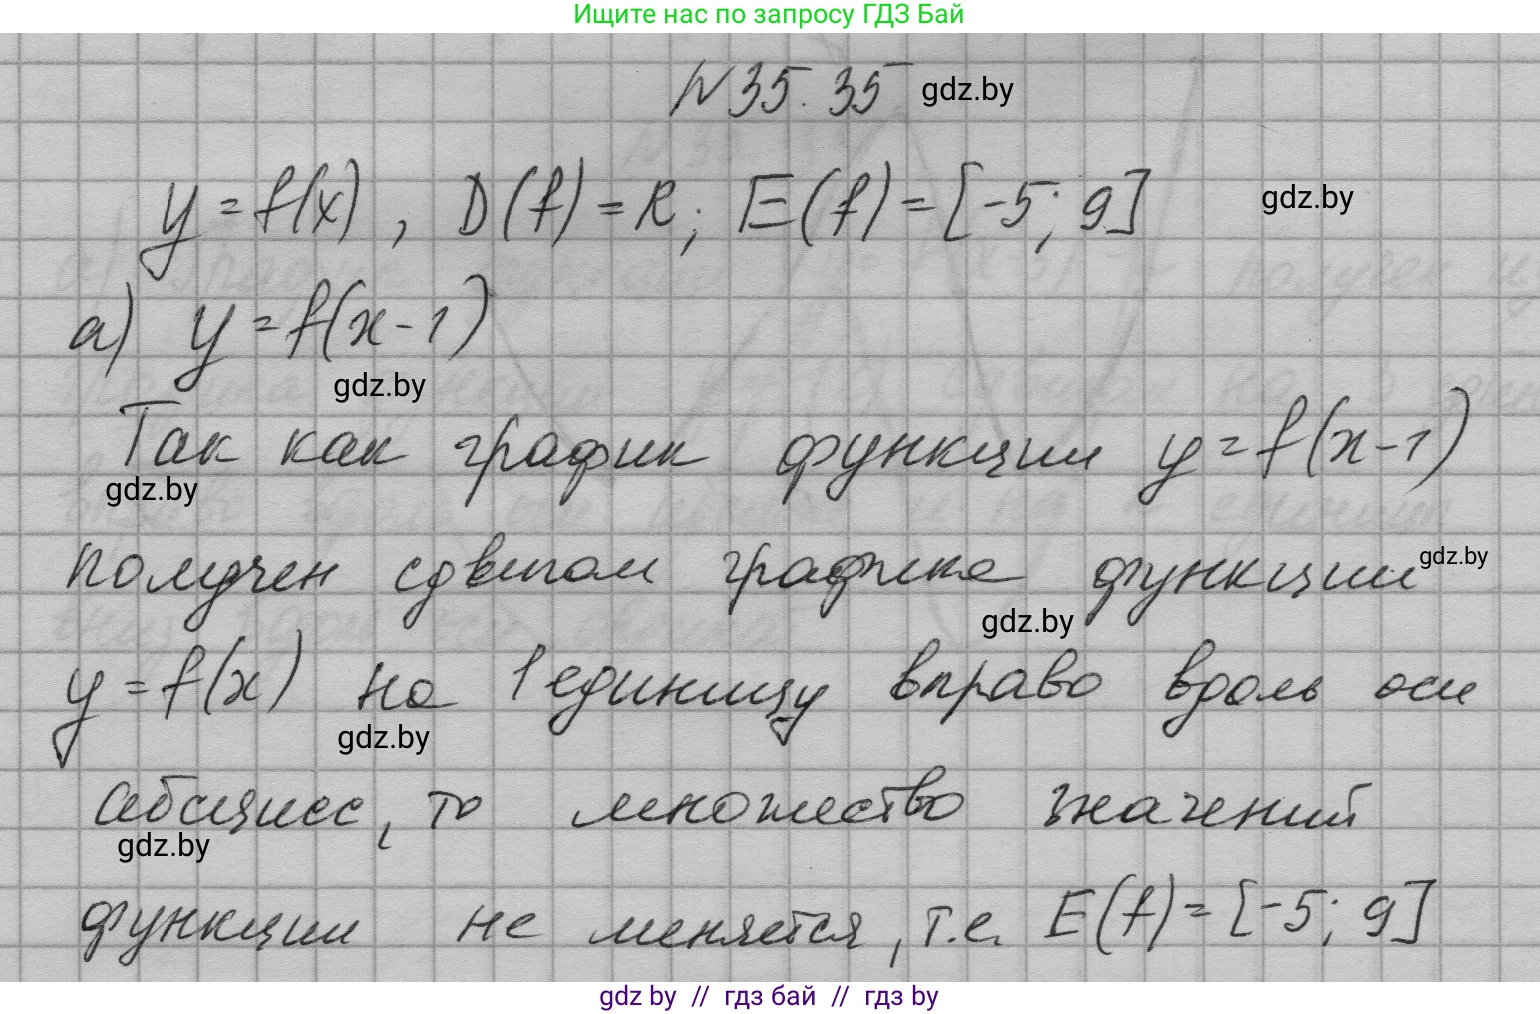 Ищите нас по запросу ГДЗ Бай
№35.35 gdz.by
y=f(x), D(f)=R; E(f)=[-5; 9] gdz.by
а) y=f(x-1)
gdz.by
Так как график функции y=f(x-1)
gdz.by
получен сдвигом графика функции gdz.by
gdz.by
y=f(x) на 1 единицу вправо вдоль оси
gdz.by
абсцисс, то множество значений
gdz.by
функции не меняется, т.е. E(f)=[-5; 9]
gdz by // гдз бай // гдз by